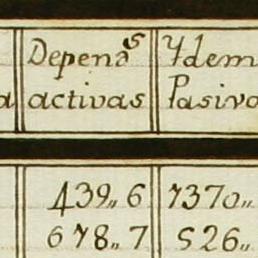 Depend.s Ydem
a activas Pasivo
439,, 6 7370,,
678,, 7 526,,